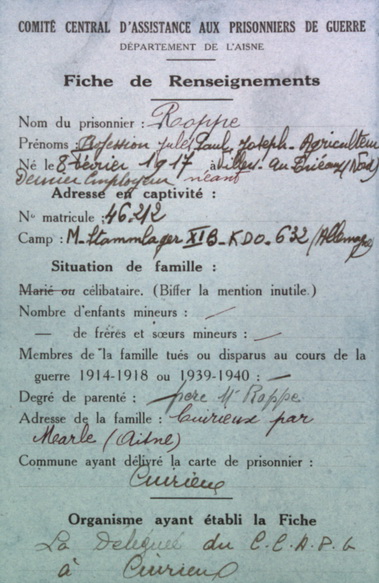 COMITÉ CENTRAL D'ASSISTANCE AUX PRISONNIERS DE GUERRE
DÉPARTEMENT DE L'AISNE
Fiche de Renseignements
Nom du prisonnier : Rappe
Prénoms : Profession Jules Paul, Joseph - Agriculteur
Né le 8 février 1917 à Villers-au
Dernier Employeur néant
Adresse en captivité :
N° matricule : 46.212
Camp : M-Stammlager XI B - KDO - 632 (Allemagne)
Situation de famille :
Marié ou célibataire. (Biffer la mention inutile.)
Nombre d'enfants mineurs : —
— de frères et sœurs mineurs : —
Membres de la famille tués ou disparus au cours de la
guerre 1914-1918 ou 1939-1940 : —
Degré de parenté : père Mr Rappe
Adresse de la famille : Cuirieux par
Marle (Aisne)
Commune ayant délivré la carte de prisonnier :
Cuirieux
Organisme ayant établi la Fiche
La Déléguée du C.C.A.P.G
à Cuirieux